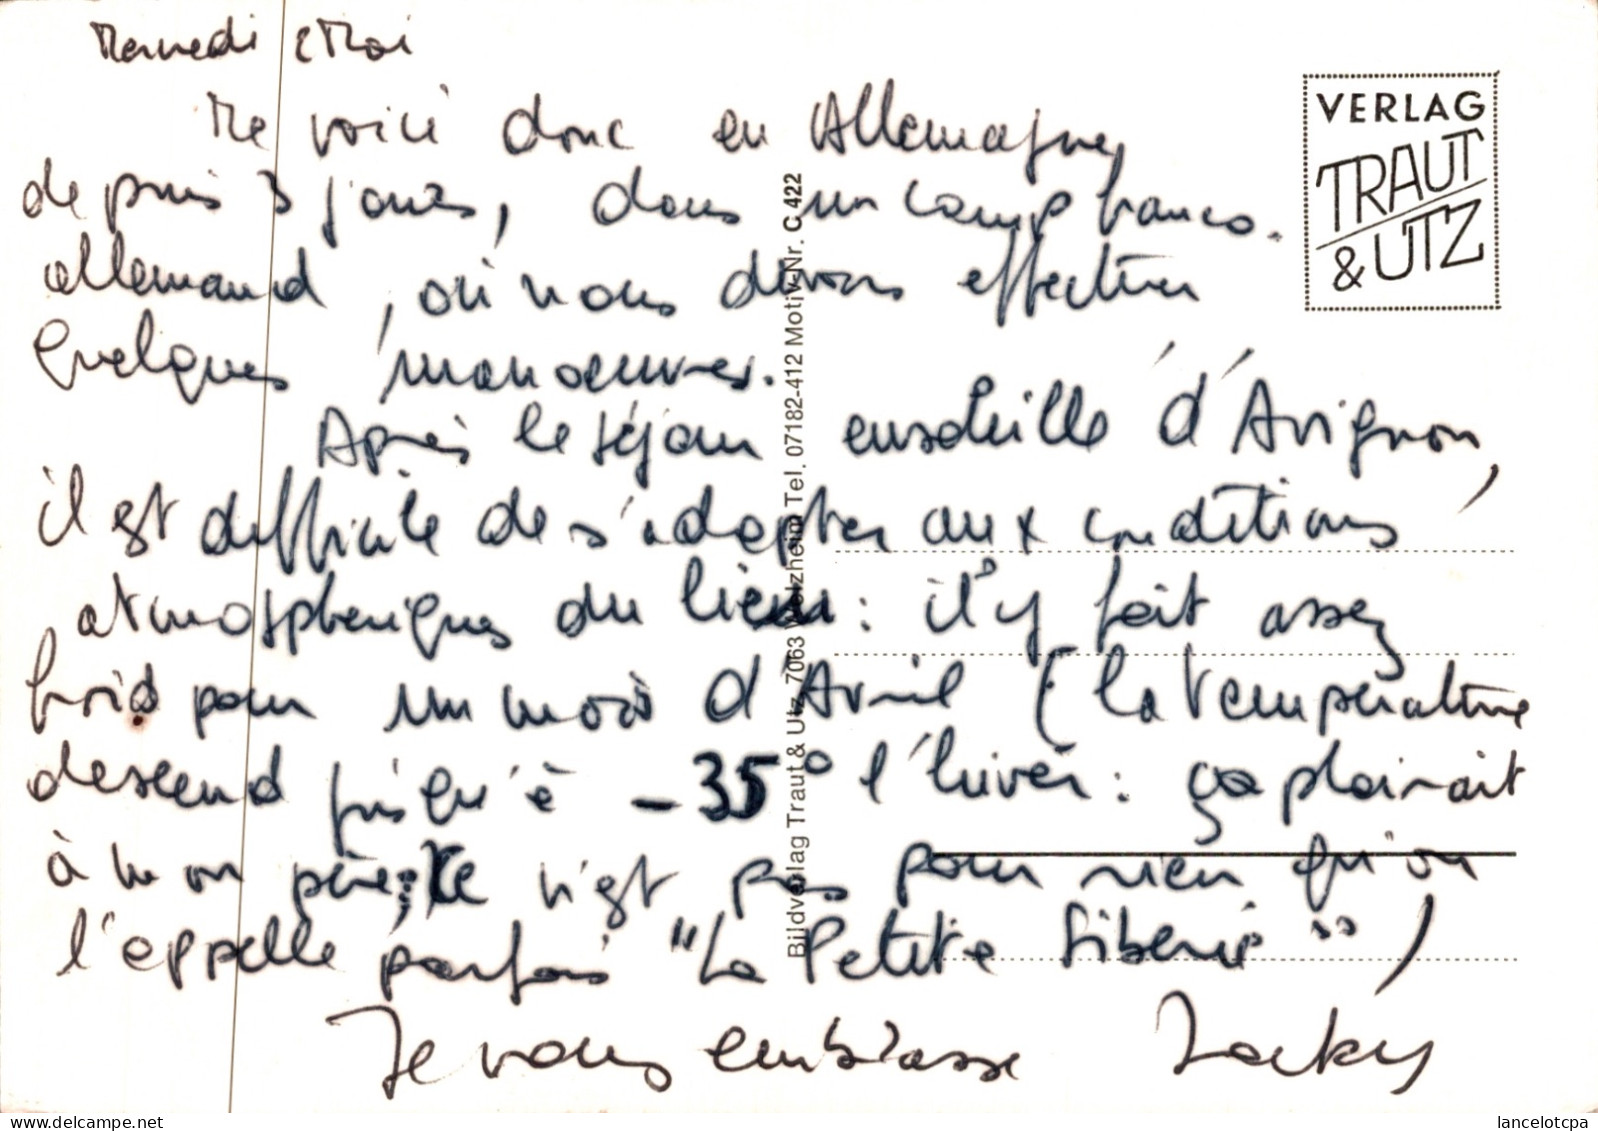 Mercredi 2 Mai
Me voici donc en Allemagne,
depuis 3 jours, dans un camp franco-
allemand, où nous devons effectuer
quelques manoeuvres.
Après le séjour ensoleillé d'Avignon,
il est difficile de s'adapter aux conditions
atmosphériques du lieu : il y fait assez
froid pour un mois d'Avril (la température
descend jusqu'à -35° l'hiver : ça plairait
à mon père ; ce n'est pas pour rien qu'on
l'appelle parfois "La Petite Sibérie")
Je vous embrasse Jacky
VERLAG
TRAUT
& UTZ
Bildverlag Traut & Utz, 7063 Welzheim Tel. 07182-412 Motiv-Nr. C 422
lancelotcpa